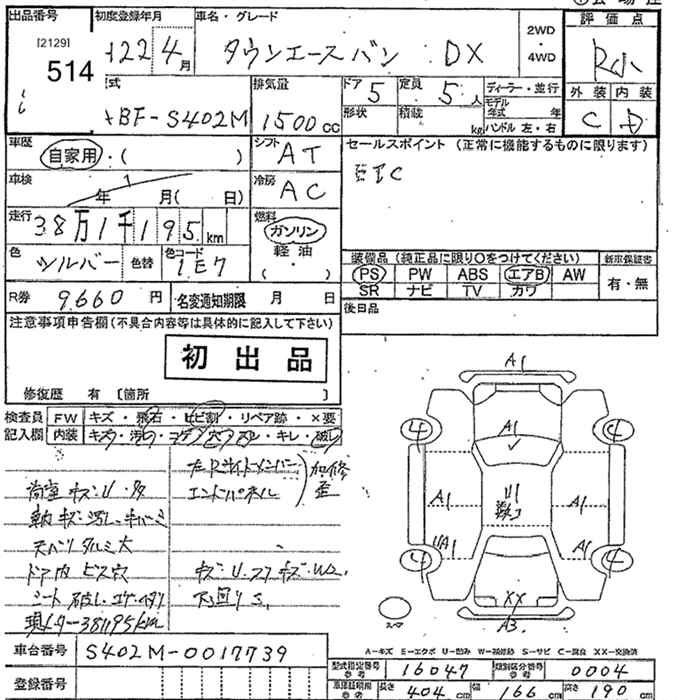 出品番号
[2129]
514
初度登録年月
22 4月
車名・グレード
タウンエースバン DX
2WD
・
4WD
評価点
外装 内装
C D
型式
BF-S402M
排気量
1500cc
ドア 5
定員 5人
形状
積載 kg
ディーラー・並行
モデル年式 年
ハンドル 左・右
車歴
自家用・( )
シフト AT
セールスポイント (正常に機能するものに限ります)
ETC
車検
年 月( 日)
冷房 AC
走行
38万1千195km
燃料
ガソリン
軽油
・
( )
色
シルバー
色替
色コード
1E7
装備品 (純正品に限り○をつけてください)
新車保証書
PS PW ABS エアB AW
SR ナビ TV カワ
有・無
R券 9,660円
名変通知期限 月 日
後日品
注意事項申告欄(不具合内容等は具体的に記入して下さい)
初出品
修復歴 有 [箇所 ]
検査員記入欄
FW キズ・飛石・ヒビ割・リペア跡・×要
内装 キズ・汚れ・コゲ・穴・スレ・キレ・破レ
左Rサイドメンバー
エンドパネル
加修
歪
荷室キズ・U・多
天バリタルミ大
ドア内ビス穴
下回りS.
現メーター381195km
A1
A1
4 4
U1
A1 A1
UA1 A1
4 4
XX
A3
スペア
A-キズ E-エクボ U-凹み W-補修跡 S-サビ C-腐食 XX-交換済
車台番号 S402M-0017739
登録番号
型式指定番号 参考 16047
類別区分番号 参考 0004
車庫証明用 参考 長さ 404cm 幅 166cm 高さ 190cm